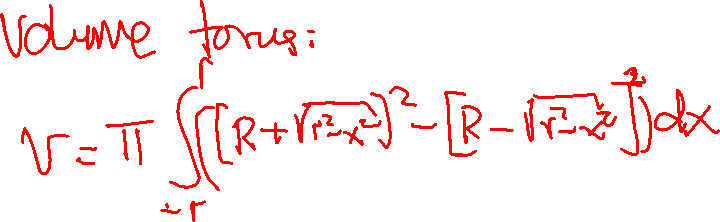 Volume torus:
V = π ∫_{-r}^{r} ([R + √(r² - x²)]² - [R - √(r² - x²)]²) dx